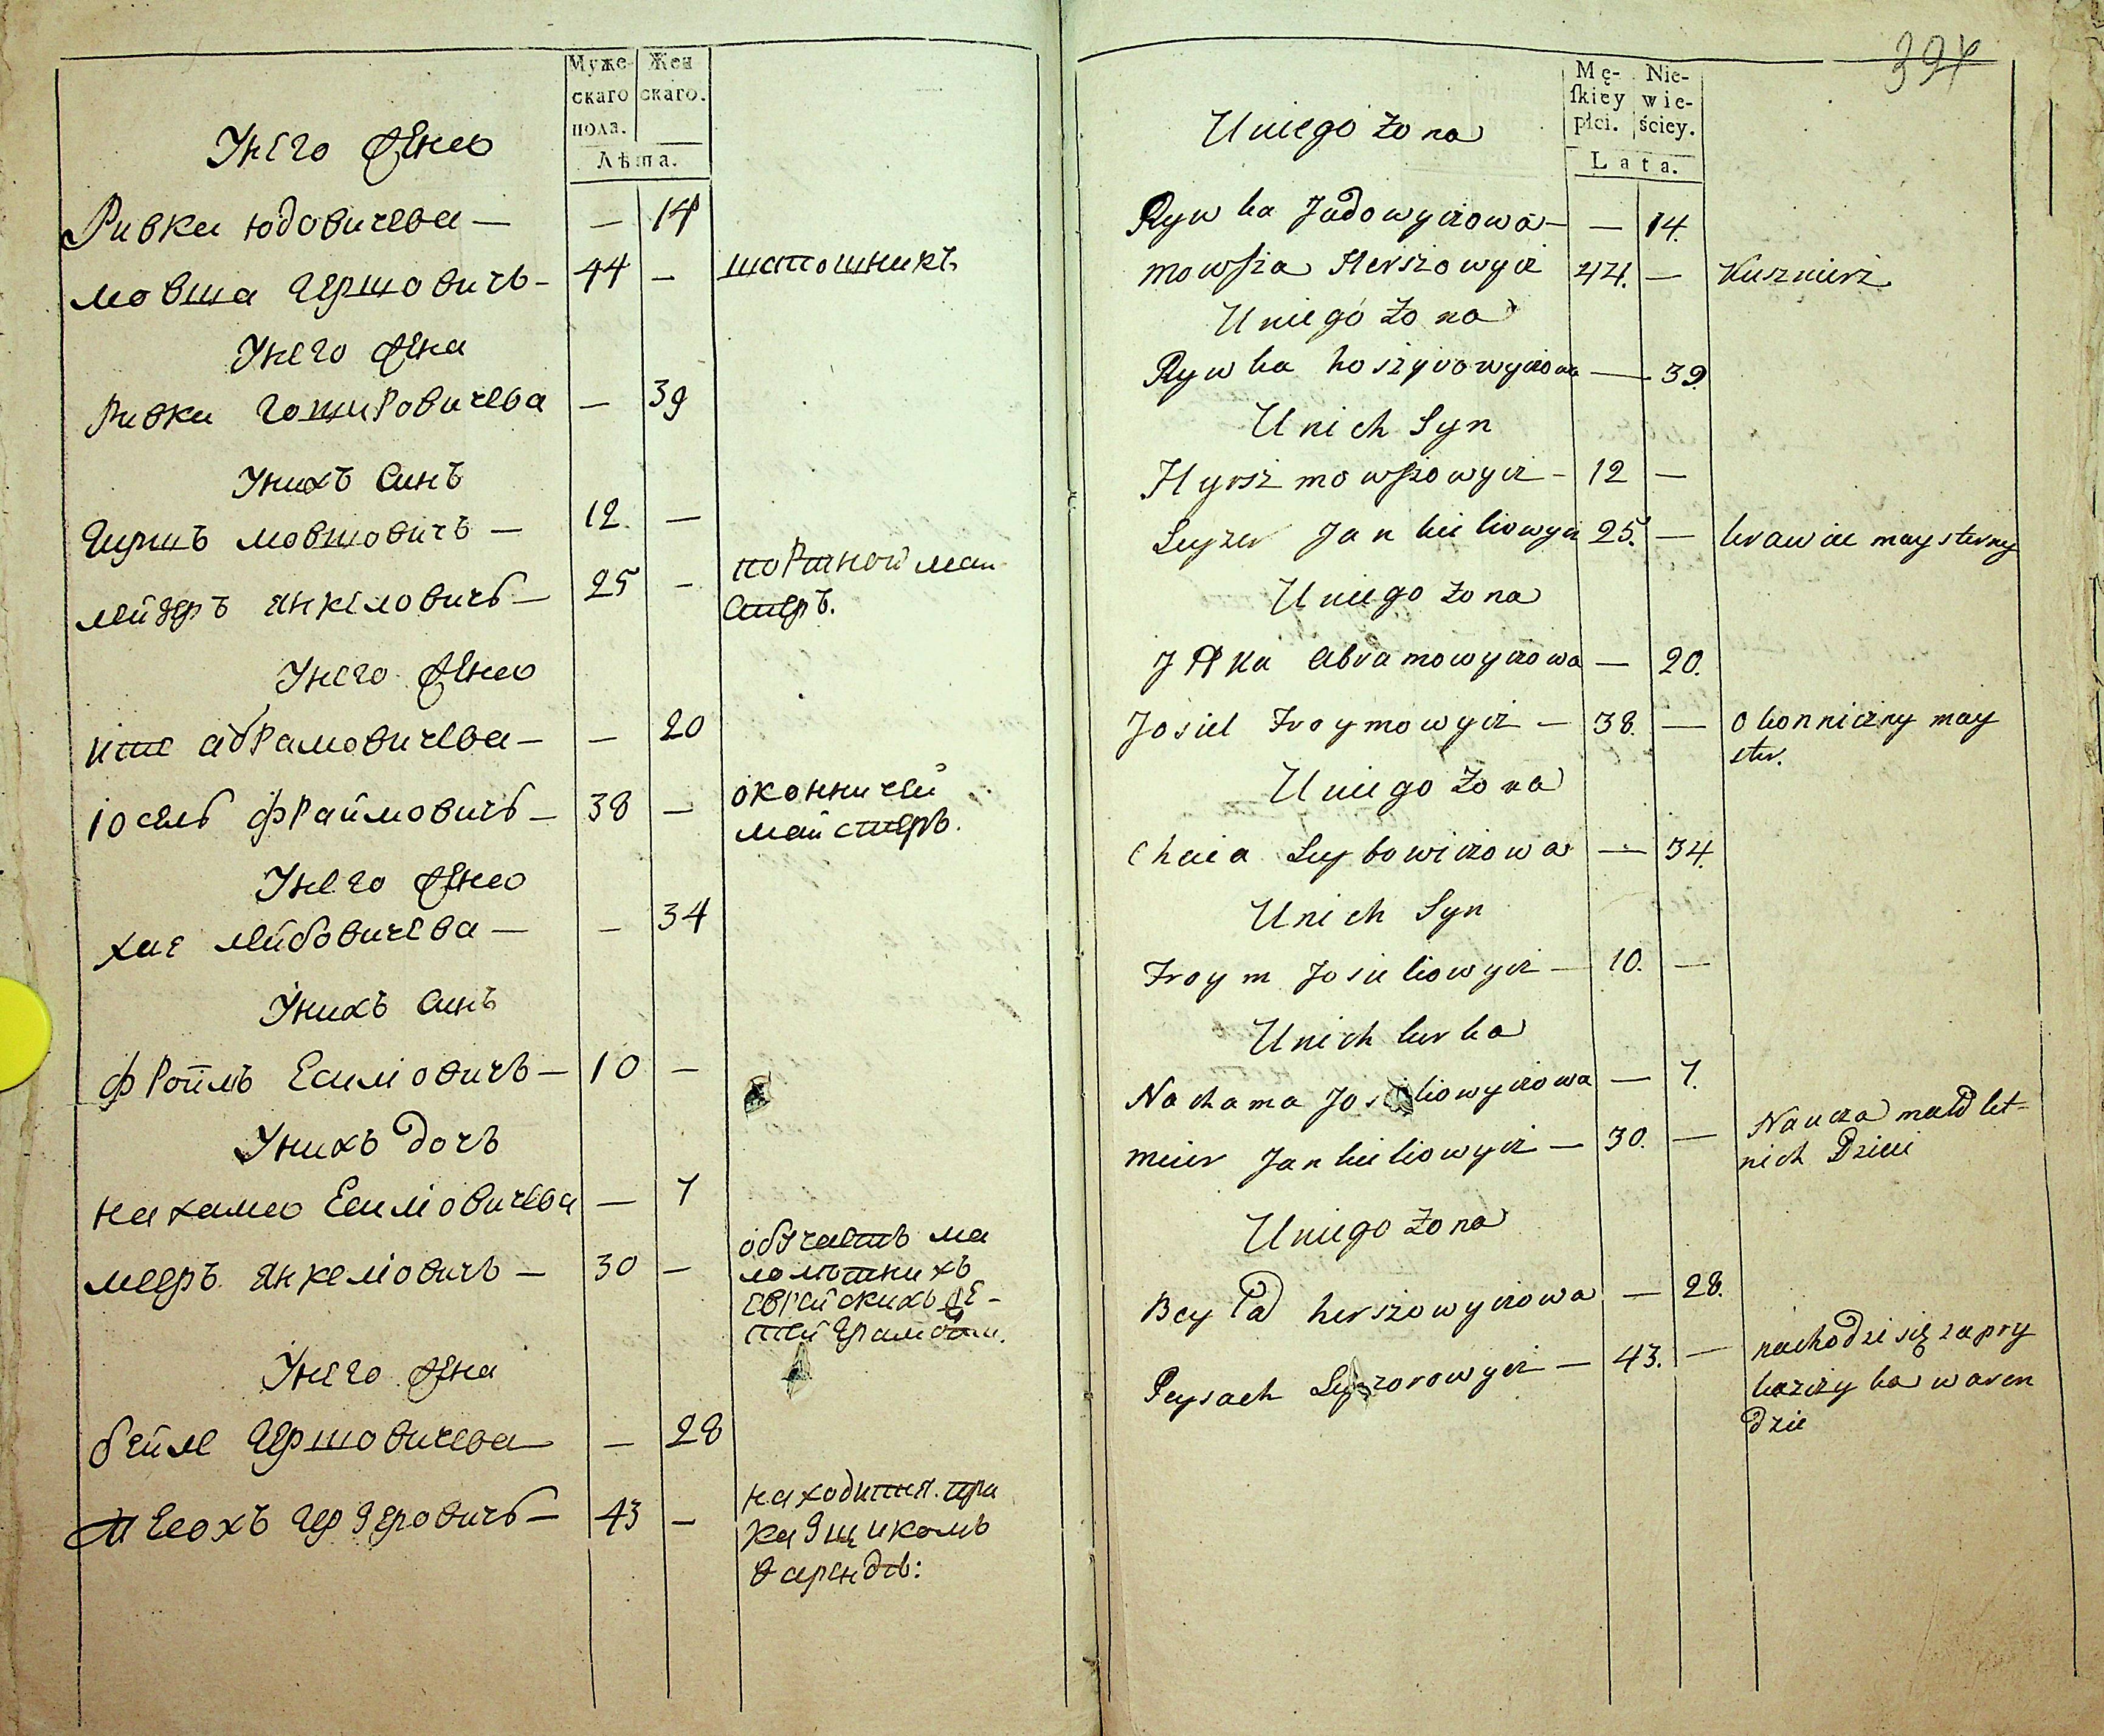 Муже- Жен
скаго скаго.
пола.
Лѣта.
Унего жена
Ривка Юдовичева — — 14
Мовша Гершовичъ — 44 — шапошникъ
Унего жена
Ривка Гошировичева — 39
Унихъ синъ
Гиршъ Мовшовичъ — 12. —
Лейзеръ Янкеловичъ — 25 — портной май
стеръ.
Унего жена
Абрамовичева — — 20
Іосель Фраймовичъ — 38 — оконничей
майстеръ.
Унего жена
Хае Лейбовичева — — 34
Унихъ синъ
Фроймъ Есиліовичъ — 10 —
Унихъ дочъ
Нахама Есиліовичева — 7
Мееръ Янкеліовичъ — 30 — обучаетъ ма
лолѣтнихъ
еврейскихъ дѣ-
тей грамоти.
Унего жена
Бейле Гершовичева — — 28
43 — находится при
кащикомъ
в арендѣ:
394
Mę- Nie-
skiey wie-
płci. ściey.
Lata.
U niego żona
Rywka Judowyczowa — — 14.
Mowsza Herszowycz 44. — Kusznierz
U niego żona
Rywka hoszyrowyczowa — 39.
U nich Syn
Hyrsz Mowszowycz — 12 —
Leyzer Jankielowycz 25. — krawiec maysterny
U niego żona
Abramowyczowa — 20.
Josiel Froymowycz — 38. — Okonniczny may
ster.
U niego żona
Chaia Leybowiczowa — 34.
U nich Syn
Froym Josieliowycz — 10. —
U nich Curka
Nachama Josieliowyczowa — 7.
Meier Jankieliowycz — 30. — Naucza małolet-
nich Dzieci
U niego żona
Beyla herszowyczowa — 28.
Peysach Leyzorowycz — 43. — nachodzi się za pry
kazczyka w aren
dzie